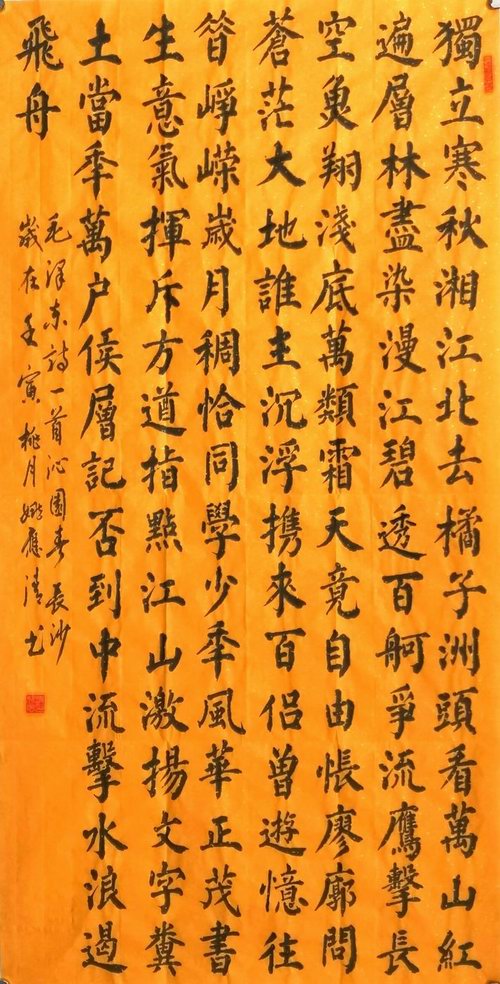 獨立寒秋湘江北去橘子洲頭看萬山紅
遍層林盡染漫江碧透百舸爭流鷹擊長
空魚翔淺底萬類霜天竟自由悵廖廓問
蒼茫大地誰主沉浮携來百侶曾遊憶往
昔崢嶸歲月稠恰同學少秊風華正茂書
生意氣揮斥方遒指點江山激揚文字糞
土當秊萬户侯層記否到中流擊水浪遏
飛舟
毛泽东詩一首沁園春長沙
歲在壬寅桃月應清书